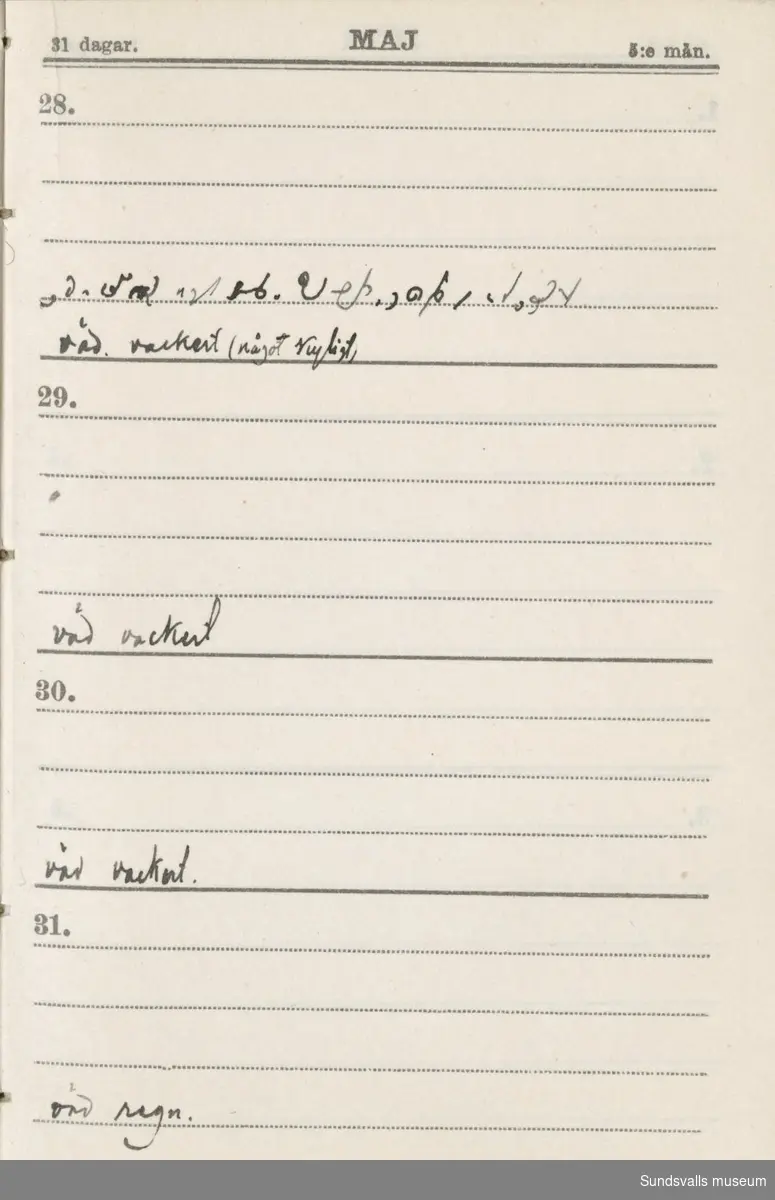 31 dagar.
MAJ
5:e mån.
28.
väd. vackert (något kyligt)
29.
väd vackert
30.
väd vackert.
31.
väd regn.
Sundsvalls museum